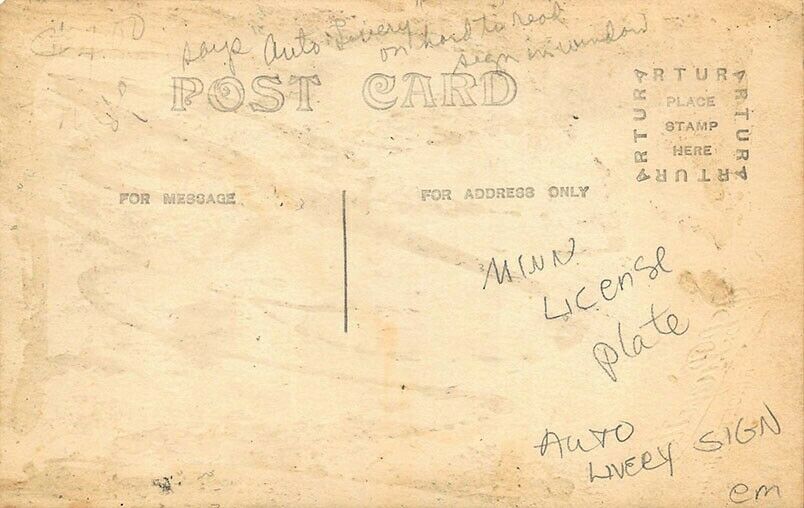 says "Auto Livery"
on hard to read
sign in window
POST CARD
ARTURA
ARTURA
ARTURA
ARTURA
PLACE
STAMP
HERE
FOR MESSAGE
FOR ADDRESS ONLY
MINN
LICENSE
Plate
AUTO
LIVERY SIGN
em